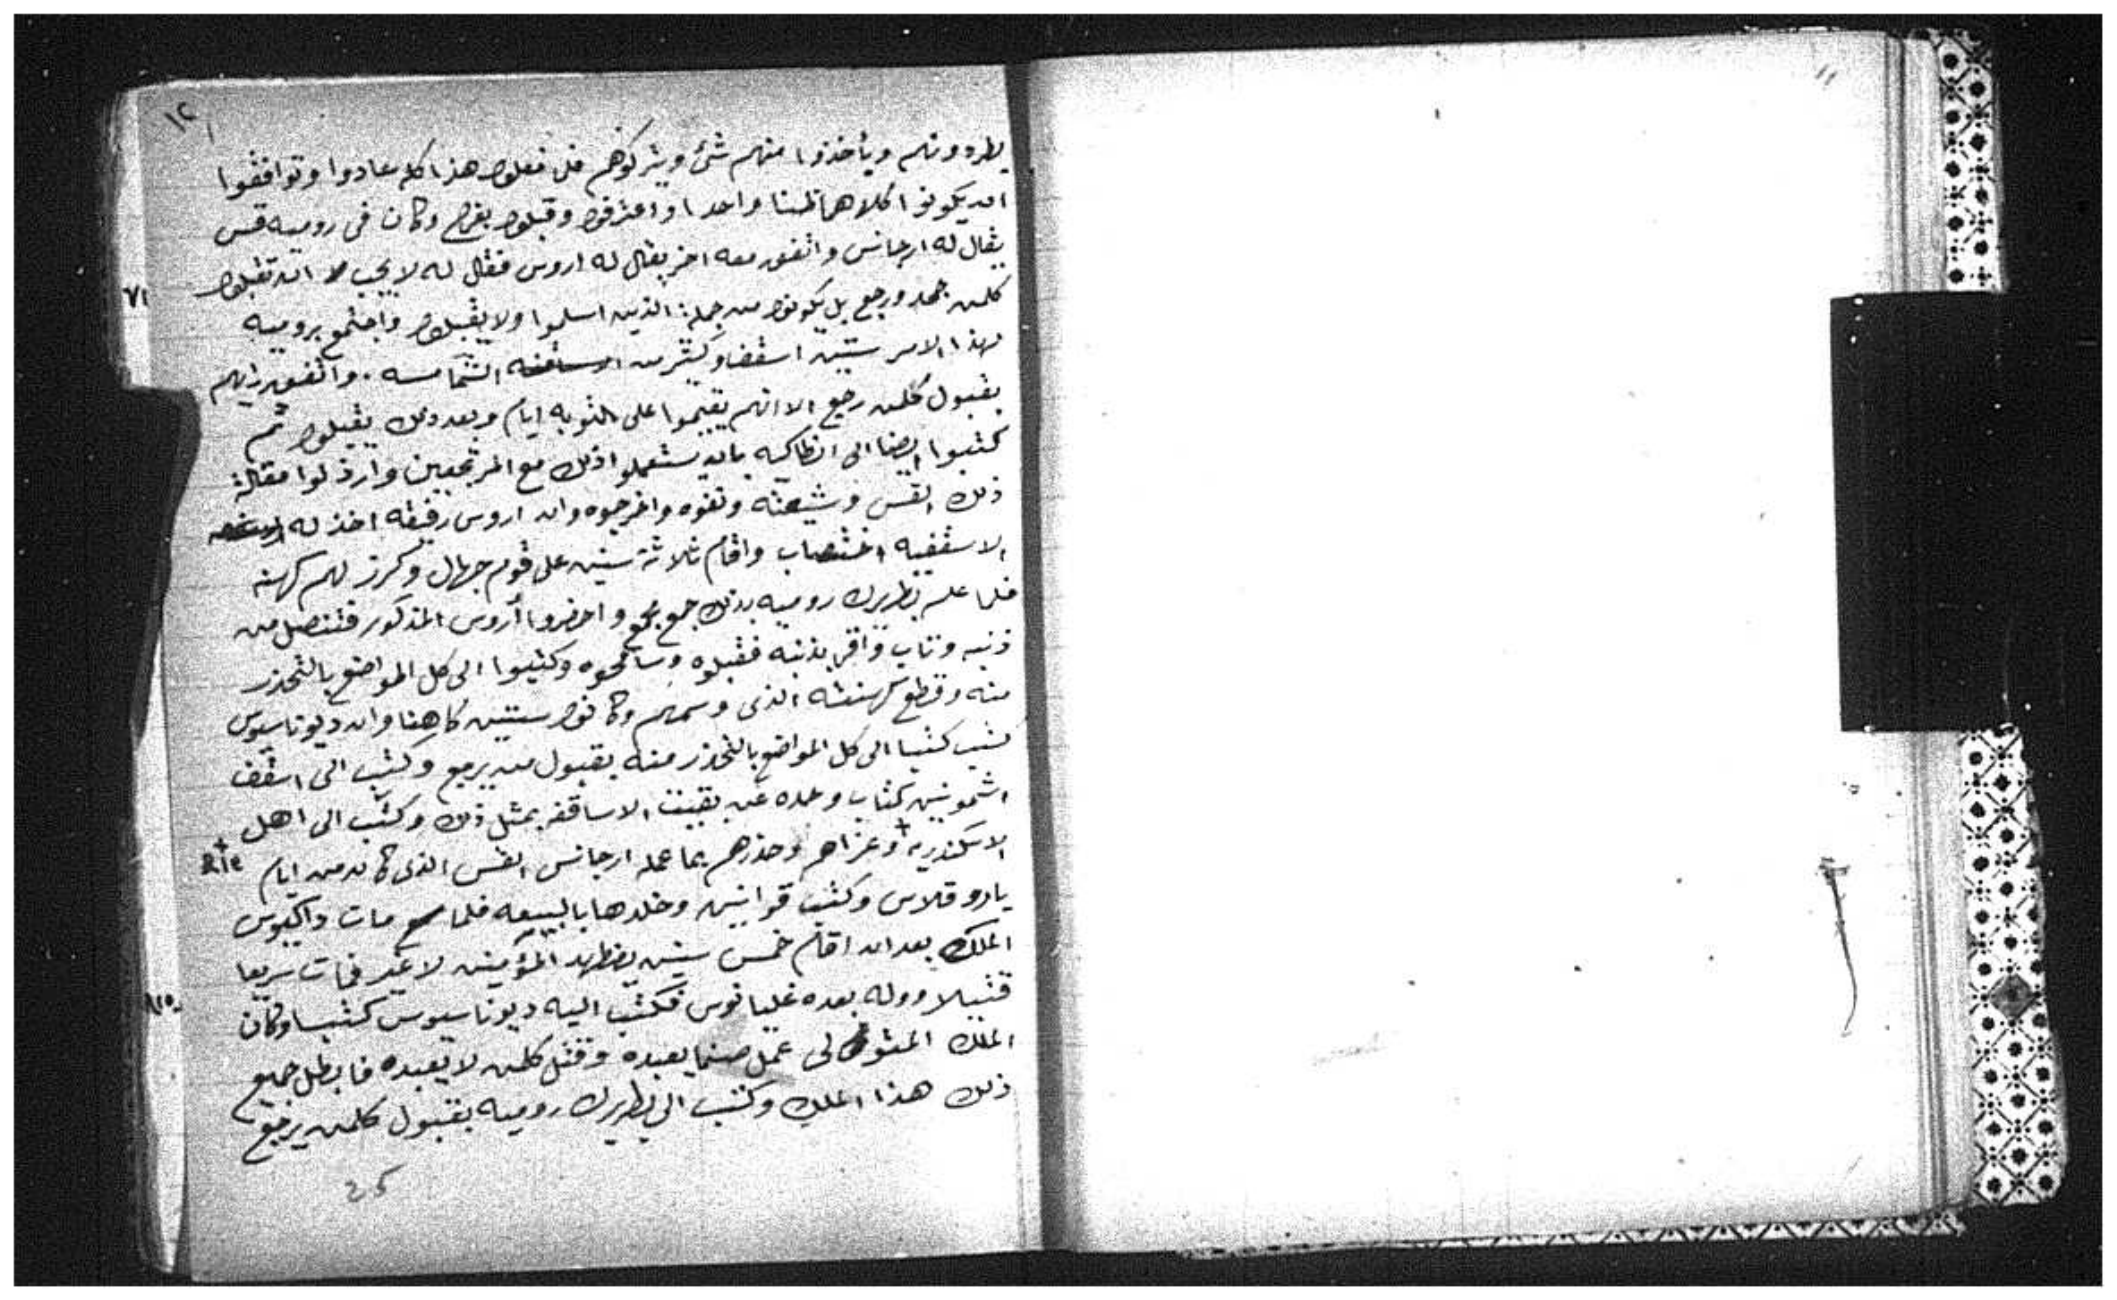 ١٢
يطردونهم ويأخذوا منهم شئ ويتركوهم فلن فعلوا هذا كله عادوا وتوافقوا
ان يكونوا كلاهما واحدا واعترفوا وقبلوا بفرح وكان فى روميه قس
يقال له ارجانس واتفق معه اخر يقال له اروس فقال له لا يجب ان تقبلوا
كلمن جحد ورجع بل يكونوا من جملة الذين اسلموا ولا يقبلوا واجتمع بروميه
٧١
لهذا الامر ستين اسقفا وكتر من الشمامسه . واتفق رايهم
بقبول كلمن رجع الا انهم يقيموا على التوبه ايام وبعد ذلك يقبلوا ثم
كتبوا ايضا الى انطاكيه بان يستعملوا ذلك مع المرتجعين وارذلوا مقالة
ذلك القس وشيعته ونفوه واخرجوه وان اروس رفيقه اخذ له
الاسقفيه اغتصاب واقام ثلاثة سنين على قوم جهال وكرز لهم كهنه
فلما علم بطريرك روميه بذلك جمع مجمع واحضروا أروس المذكور فتنصل من
ذنبه وتاب واقر بذنبه فقبلوه وسامحوه وكتبوا الى كل المواضع بالتحذر
منه وقطع كهنته الذى وسمهم وكانوا ستين كاهنا وان ديوناسيوس
كتب كتبا الى كل المواضع بالتحذر منه بقبول من يرجع وكتب الى اسقف
اشمونين كتاب وحده عن بقيت الاساقفه بمثل ذلك وكتب الى اهل
الاسكندريه + وعزاهم وحذرهم بما عمله ارجانس القس الذى كان من ايام
ياروقلاس وكتب قوانين وخلدها بالبيعه فلما مات داكيوس
الملك بعد ان اقام خمس سنين يضطهد المؤمنين لا غير فمات سريعا
قتيلا ووله بعده غليانوس فكتب اليه ديوناسيوس كتبا وكان
الملك المتوفى عمل صنما يعبده وقتل كلمن لا يعبده فابطل جميع
ذلك هذا الملك وكتب الى بطريرك روميه بقبول كلمن يرجع
25